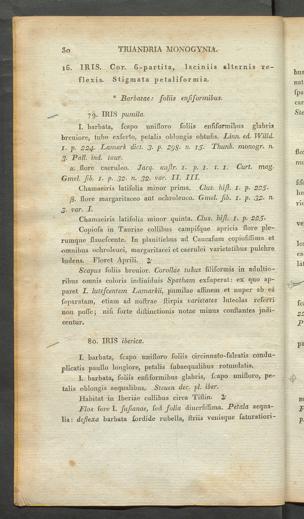 30 TRIANDRIA MONOGYNIA.
16. IRIS. Cor. 6-partita, laciniis alternis re-
flexis. Stigmata petaliformia.
* Barbatae: foliis ensiformibus.
79. IRIS pumila.
I. barbata, scapo unifloro foliis ensiformibus glabris
breuiore, tubo exserto, petalis oblongis obtusis. Linn. ed. Willd.
1. p. 224. Lamark dict. 3. p. 298. n. 15. Thunb. monogr. n.
3. Pall. ind. taur.
α. flore caeruleo. Jacq. austr. 1. p. 1. t. 1. Curt. mag.
Gmel. sib. 1. p. 32. n. 32. var. II. III.
Chamaeiris latifolia minor prima. Clus. hist. 1. p. 225.
β. flore margaritaceo aut ochroleuco. Gmel. sib. 1. p. 32. n.
3. var. I.
Chamaeiris latifolia minor quinta. Clus. hist. 1. p. 225.
Copiosa in Tauriae collibus campisque apricis flore ple-
rumque flauescente. In planitiebus ad Caucasum copiosissima et
omnibus ochroleuci, margaritacei et caerulei varietatibus pulchre
ludens. Floret Aprili. ♃
Scapus foliis breuior. Corollae tubus filiformis in adultio-
ribus omnis coloris indiuiduis Spatham exsuperat: ex quo ap-
paret I. lutescentem Lamarkii, pumilae affinem et nuper ab ea
separatam, etiam ad nostrae stirpis varietates luteolas referri
non posse; nisi forte distinctionis notae minus constantes judi-
centur.
80. IRIS iberica.
I. barbata, scapo unifloro foliis circinnato-falcatis condu-
plicatis paullo longiore, petalis subaequalibus rotundatis.
I. barbata, foliis ensiformibus glabris, scapo unifloro, pe-
talis oblongis aequalibus. Steuen dec. pl. iber.
Habitat in Iberiae collibus circa Tiflin. ♃
Flos fere I. susianae, sed folia diuersissima. Petala aequa-
lia: deflexa barbata sordide rubella, striis venisque saturatiori-